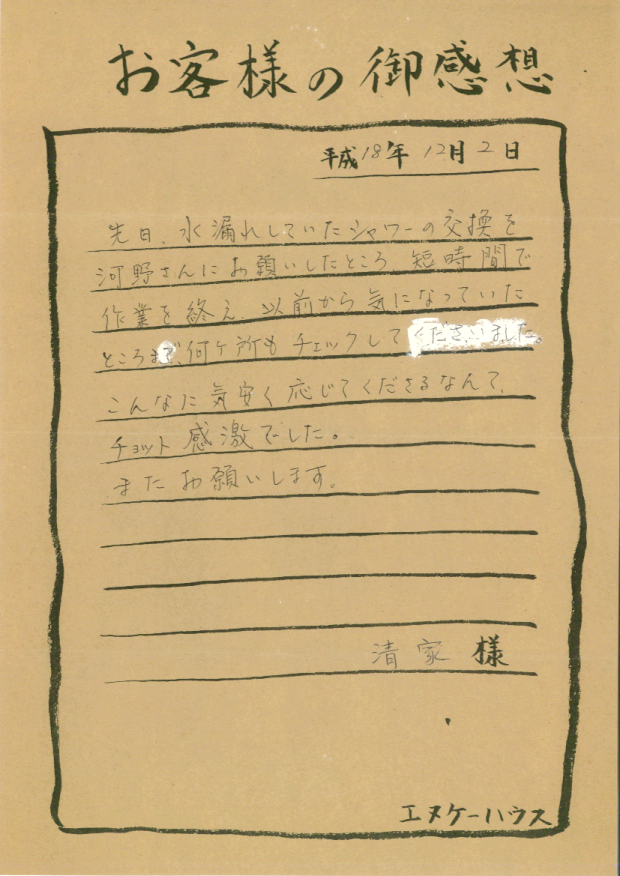 お客様の御感想
平成18年12月2日
先日、水漏れしていたシャワーの交換を
河野さんにお願いしたところ、短時間で
作業を終え、以前から気になっていた
ところまで、何ヶ所もチェックしてくださいました。
こんなに気安く応じてくださるなんて、
チョット感激でした。
またお願いします。
清家様
エヌケーハウス